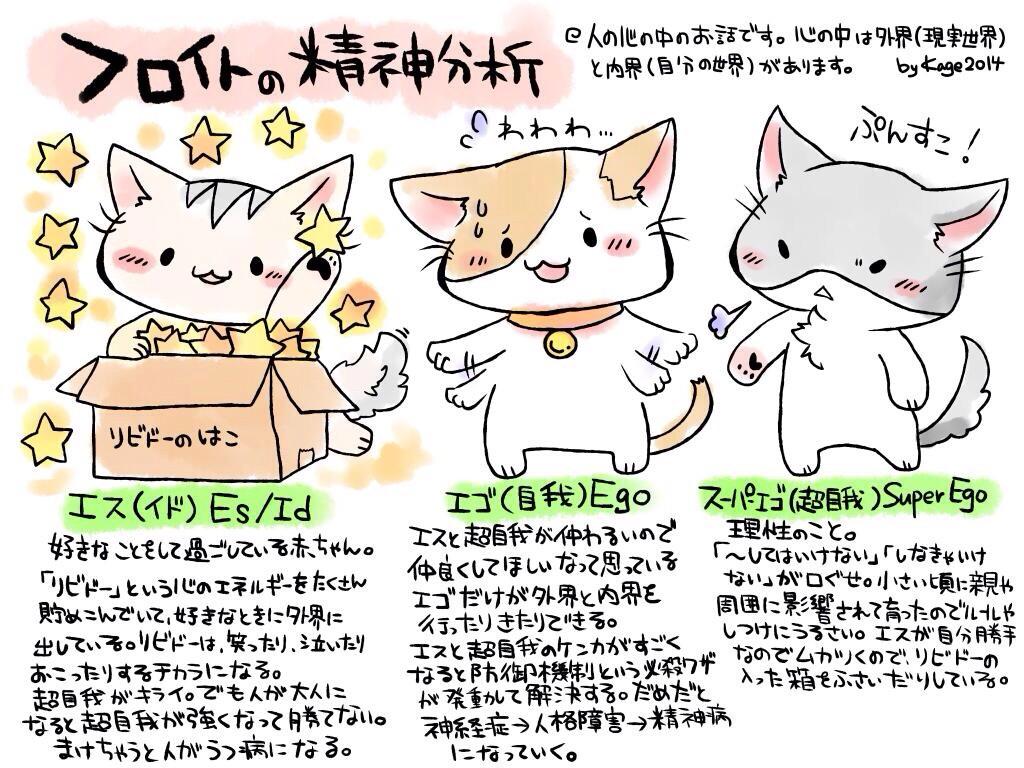 フロイトの精神分析
@人の心の中のお話です。心の中は外界(現実世界)
と内界(自分の世界)があります。 by Kage2014
わわわ…
ぷんすこ!
リビドーのはこ
エス(イド) Es/Id
好きなことをして過ごしている赤ちゃん。
「リビドー」という心のエネルギーをたくさん
貯めこんでいて、好きなときに外界に
出している。リビドーは、笑ったり、泣いたり
おこったりするチカラになる。
超自我がキライ。でも人が大人に
なると超自我が強くなって勝てない。
まけちゃうと人がうつ病になる。
エゴ(自我) Ego
エスと超自我が仲わるいので
仲良くしてほしいなって思っている
エゴだけが外界と内界を
行ったりきたりできる。
エスと超自我のケンカがすごく
なると防御機制という必殺ワザ
が発動して解決する。だめだと
神経症→人格障害→精神病
になっていく。
スーパーエゴ(超自我) Super Ego
理性のこと。
「〜してはいけない」「しなきゃいけ
ない」が口ぐせ。小さい頃に親や
周囲に影響されて育ったのでルールや
しつけにうるさい。エスが自分勝手
なのでムカツくので、リビドーの
入った箱をふさいだりしている。